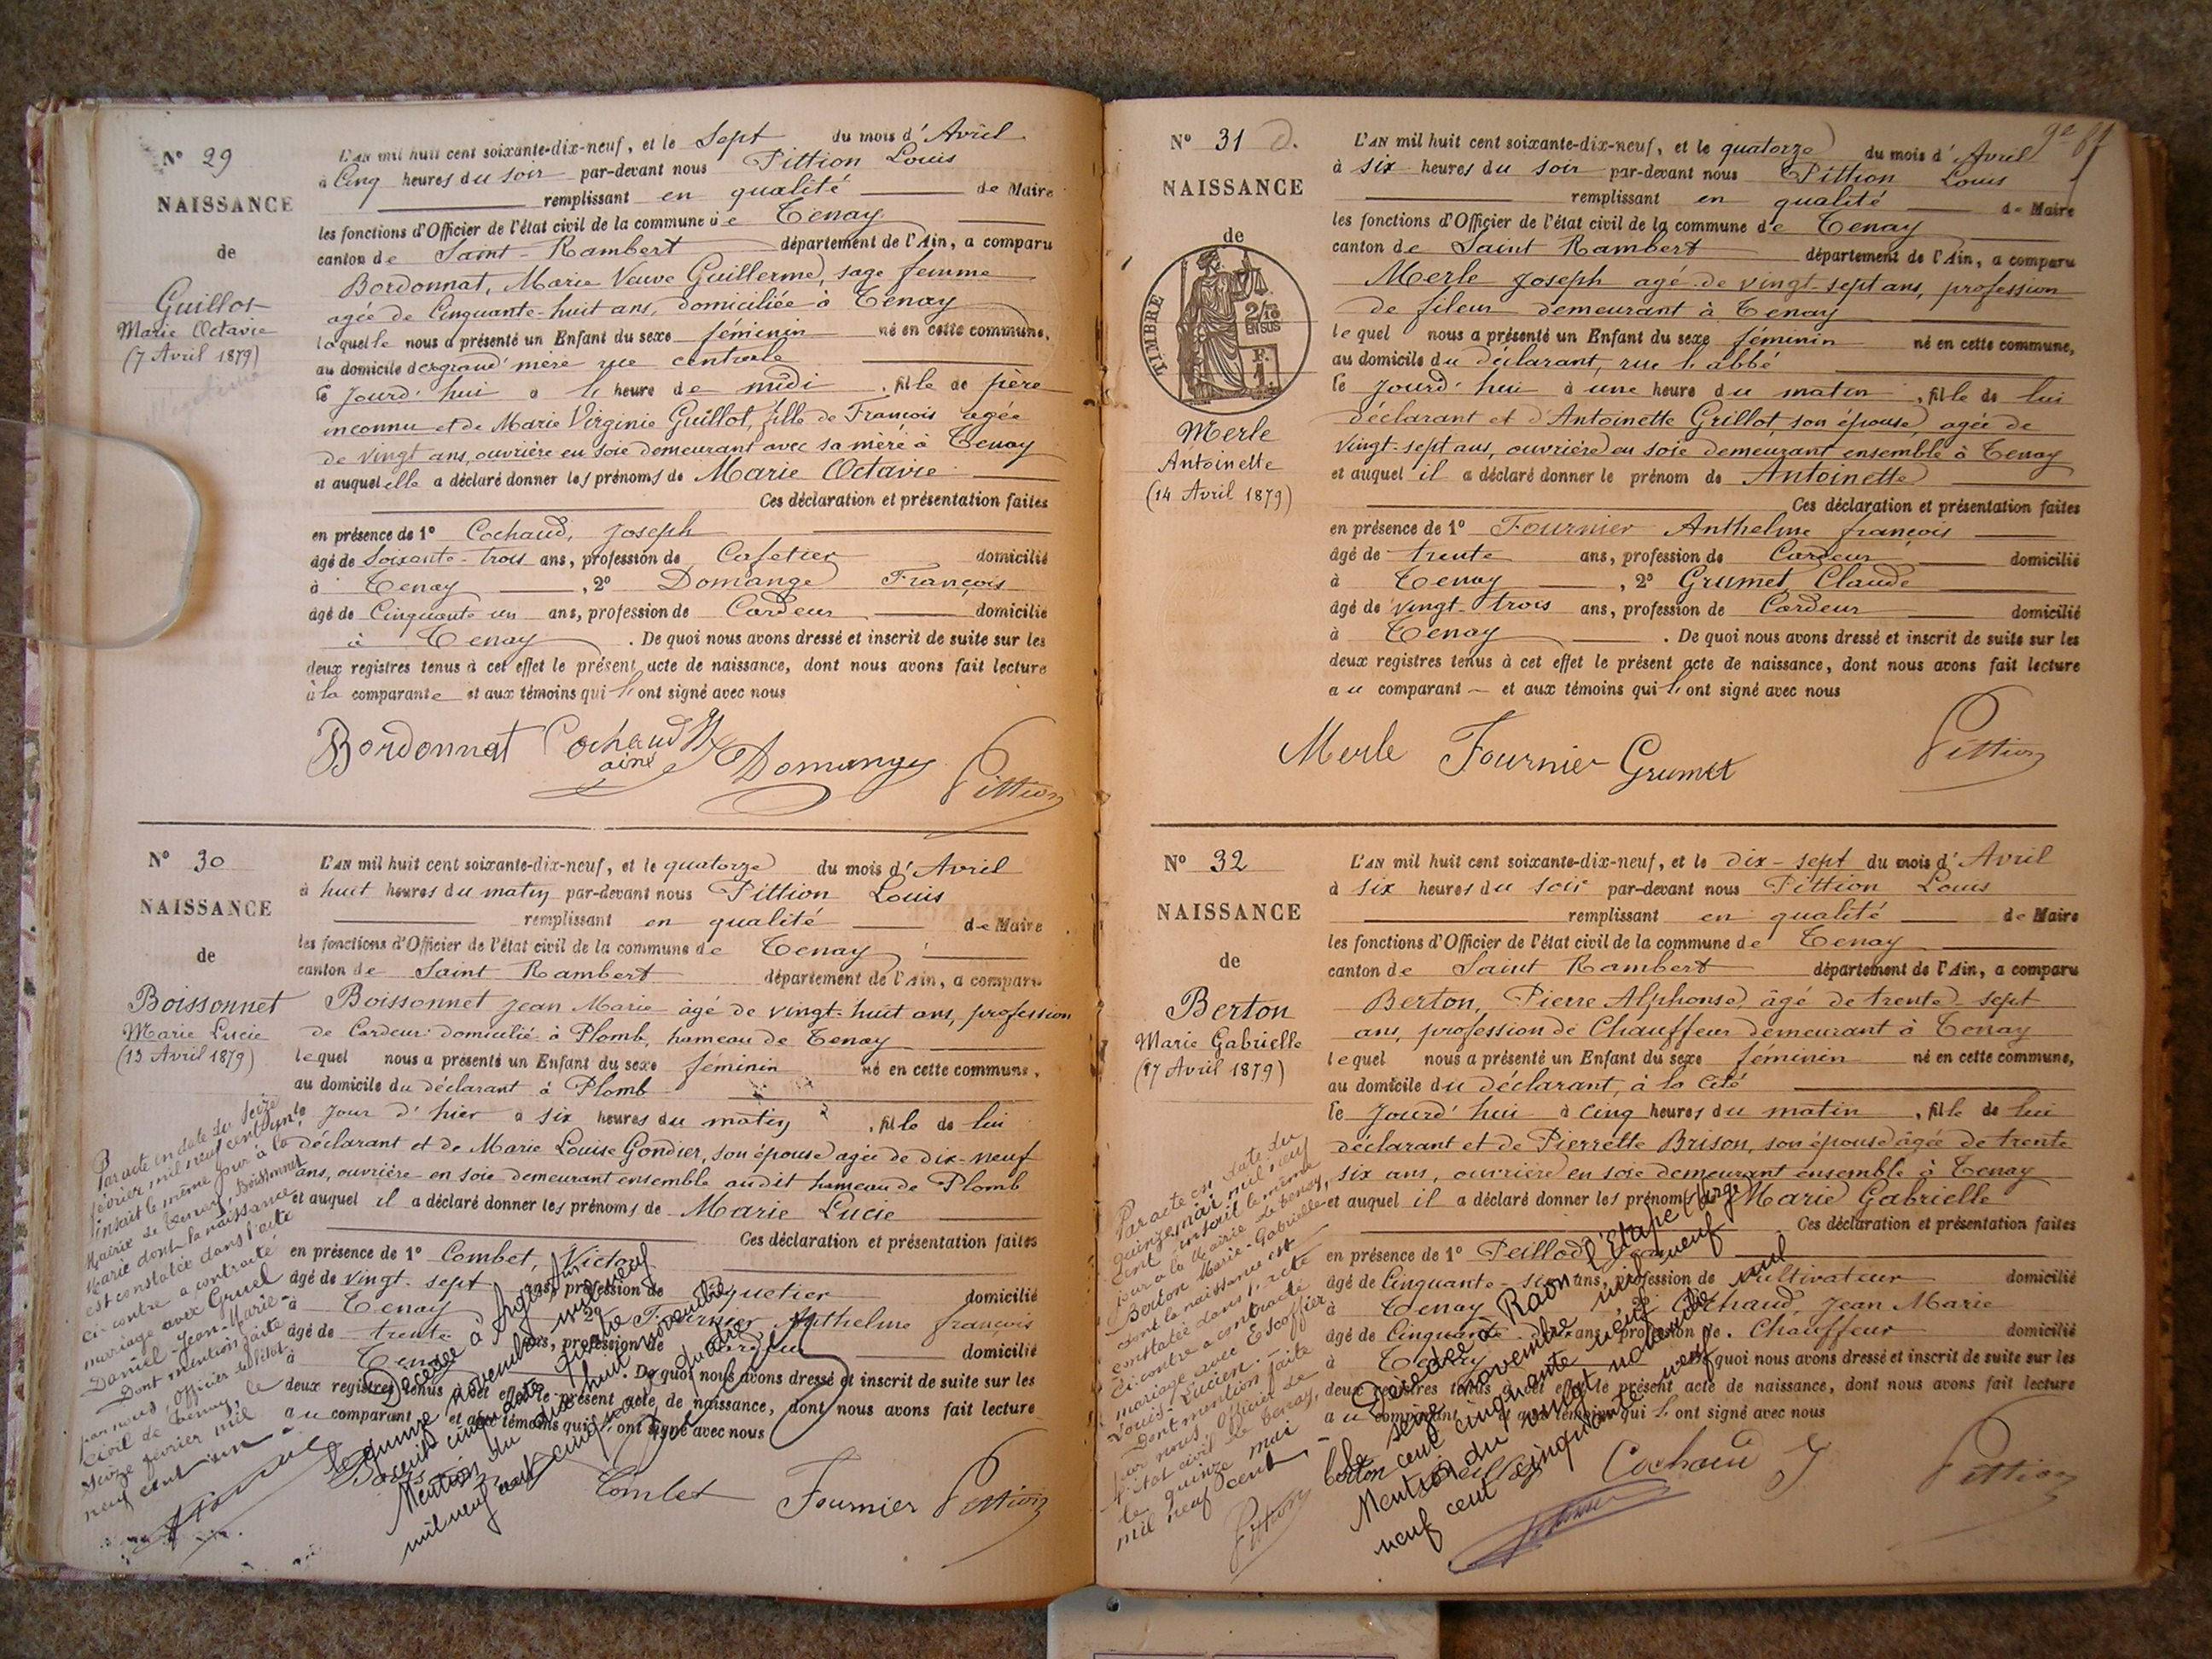 N° 29
NAISSANCE
de
Guillot
Marie Octavie
(7 Avril 1879)
L'AN mil huit cent soixante-dix-neuf, et le Sept du mois d'Avril
à Cinq heures du soir par-devant nous Pittion Louis
remplissant en qualité de Maire
les fonctions d'Officier de l'état civil de la commune de Tenay
canton de Saint-Rambert département de l'Ain, a comparu
Bordonnat, Marie Veuve Guillerme, sage femme
agée de Cinquante-huit ans, domiciliée à Tenay
laquelle nous a présenté un Enfant du sexe féminin né en cette commune,
au domicile de grand'mère rue centrale
le jourd'hui à heure de midi, fille de père
inconnu et de Marie Virginie Guillot, fille de François agée
de vingt ans, ouvrière en soie demeurant avec sa mère à Tenay
et auquel elle a déclaré donner les prénoms de Marie Octavie
Ces déclaration et présentation faites
en présence de 1° Cochaud, Joseph
âgé de Soixante-trois ans, profession de Cafetier domicilié
à Tenay, 2° Domange François
âgé de Cinquante un ans, profession de Cardeur domicilié
à Tenay. De quoi nous avons dressé et inscrit de suite sur les
deux registres tenus à cet effet le présent acte de naissance, dont nous avons fait lecture
à la comparante et aux témoins qui l'ont signé avec nous
Bordonnat Cochaud Domange Pittion
aîné
N° 30
NAISSANCE
de
Boissonnet
Marie Lucie
(13 Avril 1879)
L'AN mil huit cent soixante-dix-neuf, et le quatorze du mois d'Avril
à huit heures du matin par-devant nous Pittion Louis
remplissant en qualité de Maire
les fonctions d'Officier de l'état civil de la commune de Tenay
canton de Saint Rambert département de l'Ain, a comparu
Boissonnet Jean Marie âgé de vingt-huit ans, profession
de Cardeur domicilié à Plomb, hameau de Tenay
lequel nous a présenté un Enfant du sexe féminin né en cette commune,
au domicile du déclarant à Plomb
le jour d'hier à six heures du matin, fille de lui
déclarant et de Marie Louise Gondier, son épouse agée de dix-neuf
ans, ouvrière en soie demeurant ensemble audit hameau de Plomb
et auquel il a déclaré donner les prénoms de Marie Lucie
Ces déclaration et présentation faites
en présence de 1° Combet, Victor
âgé de vingt-sept ans, profession de domicilié
à Tenay, 2° Fournier Anthelme françois
âgé de trente ans, profession de Cardeur domicilié
à Tenay. De quoi nous avons dressé et inscrit de suite sur les
deux registres tenus à cet effet le présent acte de naissance, dont nous avons fait lecture
au comparant et aux témoins qui l'ont signé avec nous
Combet Fournier Pittion
Par acte en date du seize
février mil neuf cent un,
inscrit le même jour à la
Mairie de Tenay, Boissonnet
Marie dont la naissance
est constatée dans l'acte
ci-contre a contracté
mariage avec Gruel
Daniel-Jean-Marie-
Dont mention faite
par nous, Officier de l'état
civil de Tenay, le
Seize février mil
neuf cent un
Décédée à
le quinze novembre mil neuf
cent cinquante
Mention du dix huit novembre
mil neuf cent cinquante
N° 31 D.
NAISSANCE
de
TIMBRE
2/10
EN SUS
F.
1
Merle
Antoinette
(14 Avril 1879)
L'AN mil huit cent soixante-dix-neuf, et le quatorze du mois d'Avril
à six heures du soir par-devant nous Pittion Louis
remplissant en qualité de Maire
les fonctions d'Officier de l'état civil de la commune de Tenay
canton de Saint Rambert département de l'Ain, a comparu
Merle Joseph agé de vingt-sept ans, profession
de fileur demeurant à Tenay
lequel nous a présenté un Enfant du sexe féminin né en cette commune,
au domicile du déclarant, rue l'abbé
le jourd'hui à une heure du matin, fille de lui
déclarant et d'Antoinette Grillot, son épouse, agée de
vingt-sept ans, ouvrière en soie demeurant ensemble à Tenay
et auquel il a déclaré donner le prénom de Antoinette
Ces déclaration et présentation faites
en présence de 1° Fournier Anthelme françois
âgé de trente ans, profession de Cardeur domicilié
à Tenay, 2° Grumet Claude
âgé de vingt-trois ans, profession de Cardeur domicilié
à Tenay. De quoi nous avons dressé et inscrit de suite sur les
deux registres tenus à cet effet le présent acte de naissance, dont nous avons fait lecture
au comparant et aux témoins qui l'ont signé avec nous
Merle Fournier Grumet Pittion
N° 32
NAISSANCE
de
Berton
Marie Gabrielle
(17 Avril 1879)
L'AN mil huit cent soixante-dix-neuf, et le dix-sept du mois d'Avril
à six heures du soir par-devant nous Pittion Louis
remplissant en qualité de Maire
les fonctions d'Officier de l'état civil de la commune de Tenay
canton de Saint Rambert département de l'Ain, a comparu
Berton, Pierre Alphonse, âgé de trente-sept
ans, profession de Chauffeur demeurant à Tenay
lequel nous a présenté un Enfant du sexe féminin né en cette commune,
au domicile du déclarant, à la Cité
le jourd'hui à cinq heures du matin, fille de lui
déclarant et de Pierrette Brison, son épouse âgée de trente
six ans, ouvrière en soie demeurant ensemble à Tenay
et auquel il a déclaré donner les prénoms de Marie Gabrielle
Ces déclaration et présentation faites
en présence de 1° Peillod
âgé de Cinquante-six ans, profession de Cultivateur domicilié
à Tenay, 2° Cochaud, Jean Marie
âgé de Cinquante ans, profession de Chauffeur domicilié
à Tenay. De quoi nous avons dressé et inscrit de suite sur les
deux registres tenus à cet effet le présent acte de naissance, dont nous avons fait lecture
au comparant et aux témoins qui l'ont signé avec nous
Berton Peillod Cochaud J Pittion
Par acte en date du
quinze mai mil neuf
cent inscrit le même
jour à la Mairie de Tenay,
Berton Marie-Gabrielle
dont la naissance est
constatée dans l'acte
ci-contre a contracté
mariage avec Escoffier
Louis-Lucien.
Dont mention faite
par nous, Officier de
l'état civil de Tenay,
le quinze mai
mil neuf cent
Pittion
Décédée à Raon l'Étape (Vosges)
le seize novembre mil neuf
cent cinquante neuf
Mention du vingt novembre mil
neuf cent cinquante neuf